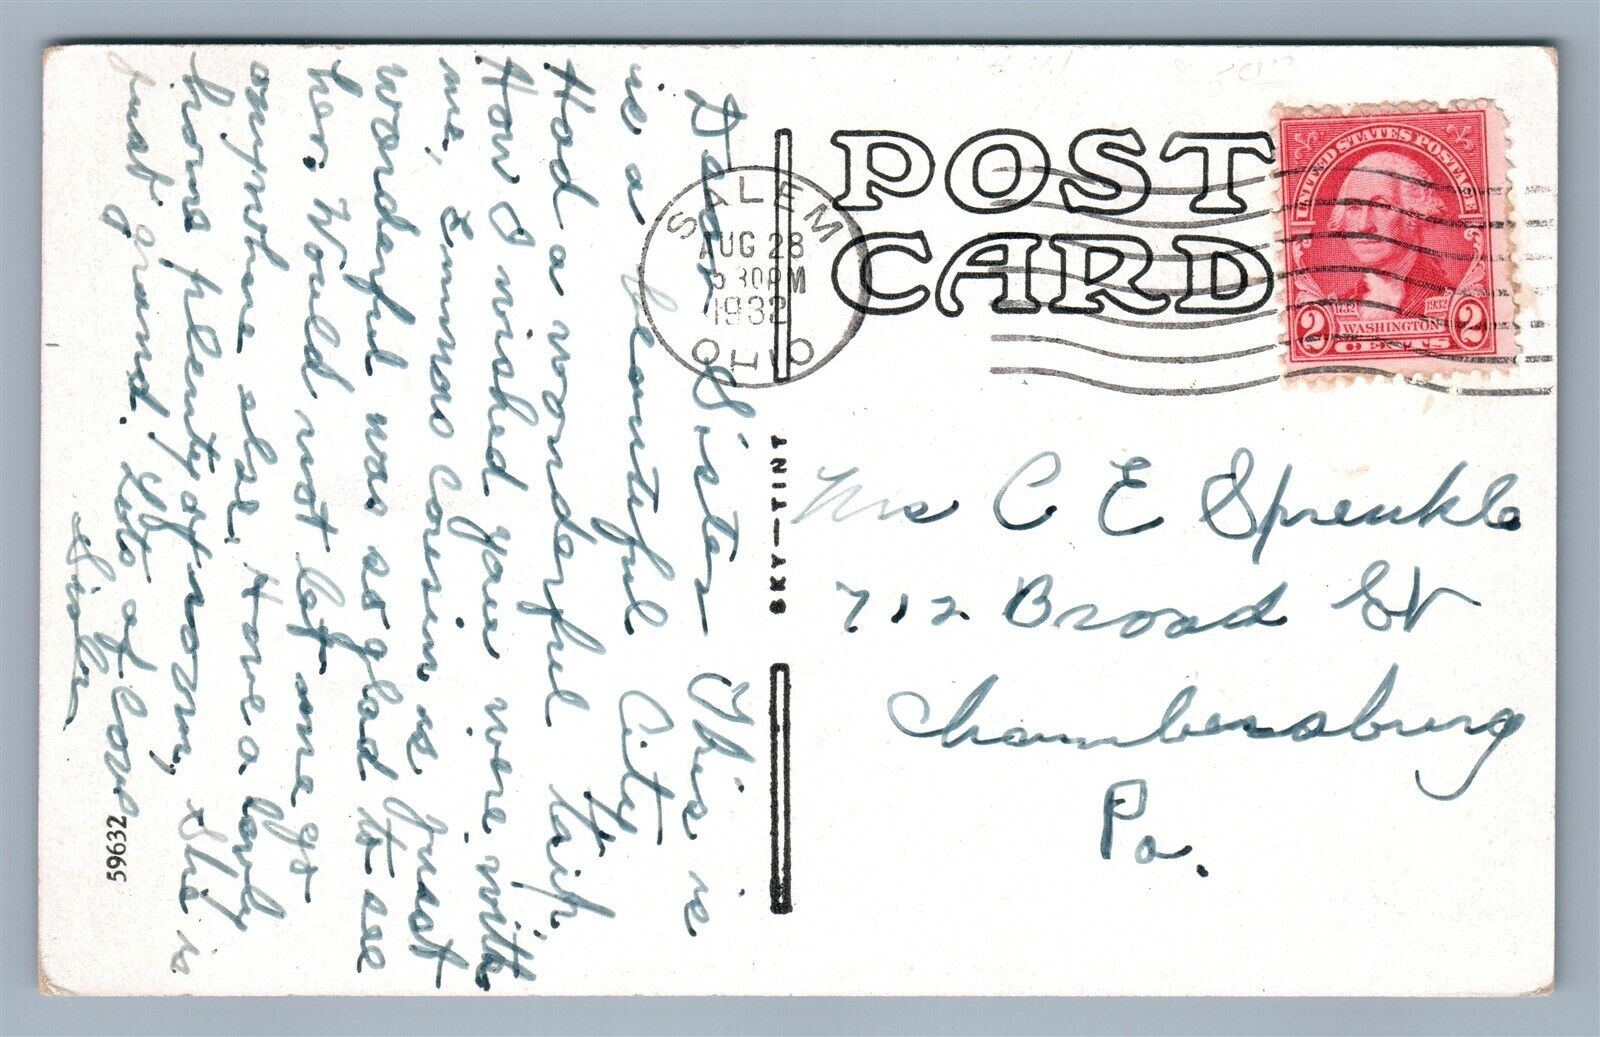 Dear Sister This is
is a beautiful City
Had a wonderful trip.
How I wished you were with
me, Emmas Cousin is just
wonderful was so glad to see
her. Would not let me go
anywhere else, Have a lovely
home plenty of room, She is
just grand. Lots of love
Sister
59632
POST
CARD
SALEM
AUG 28
5 30 PM
1932
OHIO
UNITED STATES POSTAGE
1732 1932
2 WASHINGTON 2
CENTS
SKY-TINT
Mrs C E Sprenkle
712 Broad St
Chambersburg
Pa.